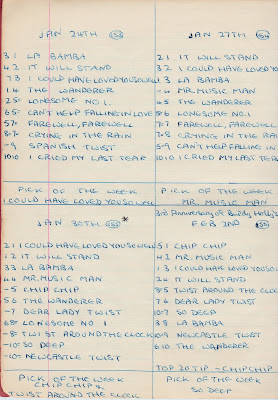 JAN 24TH
3 1 LA BAMBA
4 2 IT WILL STAND
7 3 I COULD HAVE LOVED YOU SO WELL
1 4 THE WANDERER
2 5 LONESOME NO 1.
6 5 CAN'T HELP FALLING IN LOVE
5 7 FAREWELL, FAREWELL
8 7 CRYING IN THE RAIN
- 9 SPANISH TWIST
10 10 I CRIED MY LAST TEAR
PICK OF THE WEEK
I COULD HAVE LOVED YOU SO WELL
JAN 27TH
2 1 IT WILL STAND
3 2 I COULD HAVE LOVED YO
1 3 LA BAMBA
- 4 MR. MUSIC MAN
4 5 THE WANDERER
5 6 LONESOME NO 1
7 7 FAREWELL, FAREWELL
7 8 CRYING IN THE RAIN
5 9 CAN'T HELP FALLING IN
10 10 I CRIED MY LAST TEAR
PICK OF THE WEEK
MR. MUSIC MAN
JAN 30TH *
2 1 I COULD HAVE LOVED YOU SO WELL
1 2 IT WILL STAND
3 3 LA BAMBA
4 4 MR. MUSIC MAN
- 5 CHIP CHIP
5 6 THE WANDERER
- 7 DEAR LADY TWIST
6 8 LONESOME NO 1
- 8 TWIST AROUND THE CLOCK
- 10 SO DEEP
- 10 NEWCASTLE TWIST
PICK OF THE WEEK
CHIP CHIP &
TWIST AROUND THE CLOCK
3rd Anniversary of Buddy Holly's
FEB 2ND
5 1 CHIP CHIP
4 2 MR. MUSIC MAN
1 3 I COULD HAVE LOVED YOU SO
2 4 IT WILL STAND
8 5 TWIST AROUND THE CLOCK
7 6 DEAR LADY TWIST
10 7 SO DEEP
3 8 LA BAMBA
10 9 NEWCASTLE TWIST
6 10 THE WANDERER
TOP 20 TIP - CHIP CHIP
PICK OF THE WEEK
SO DEEP